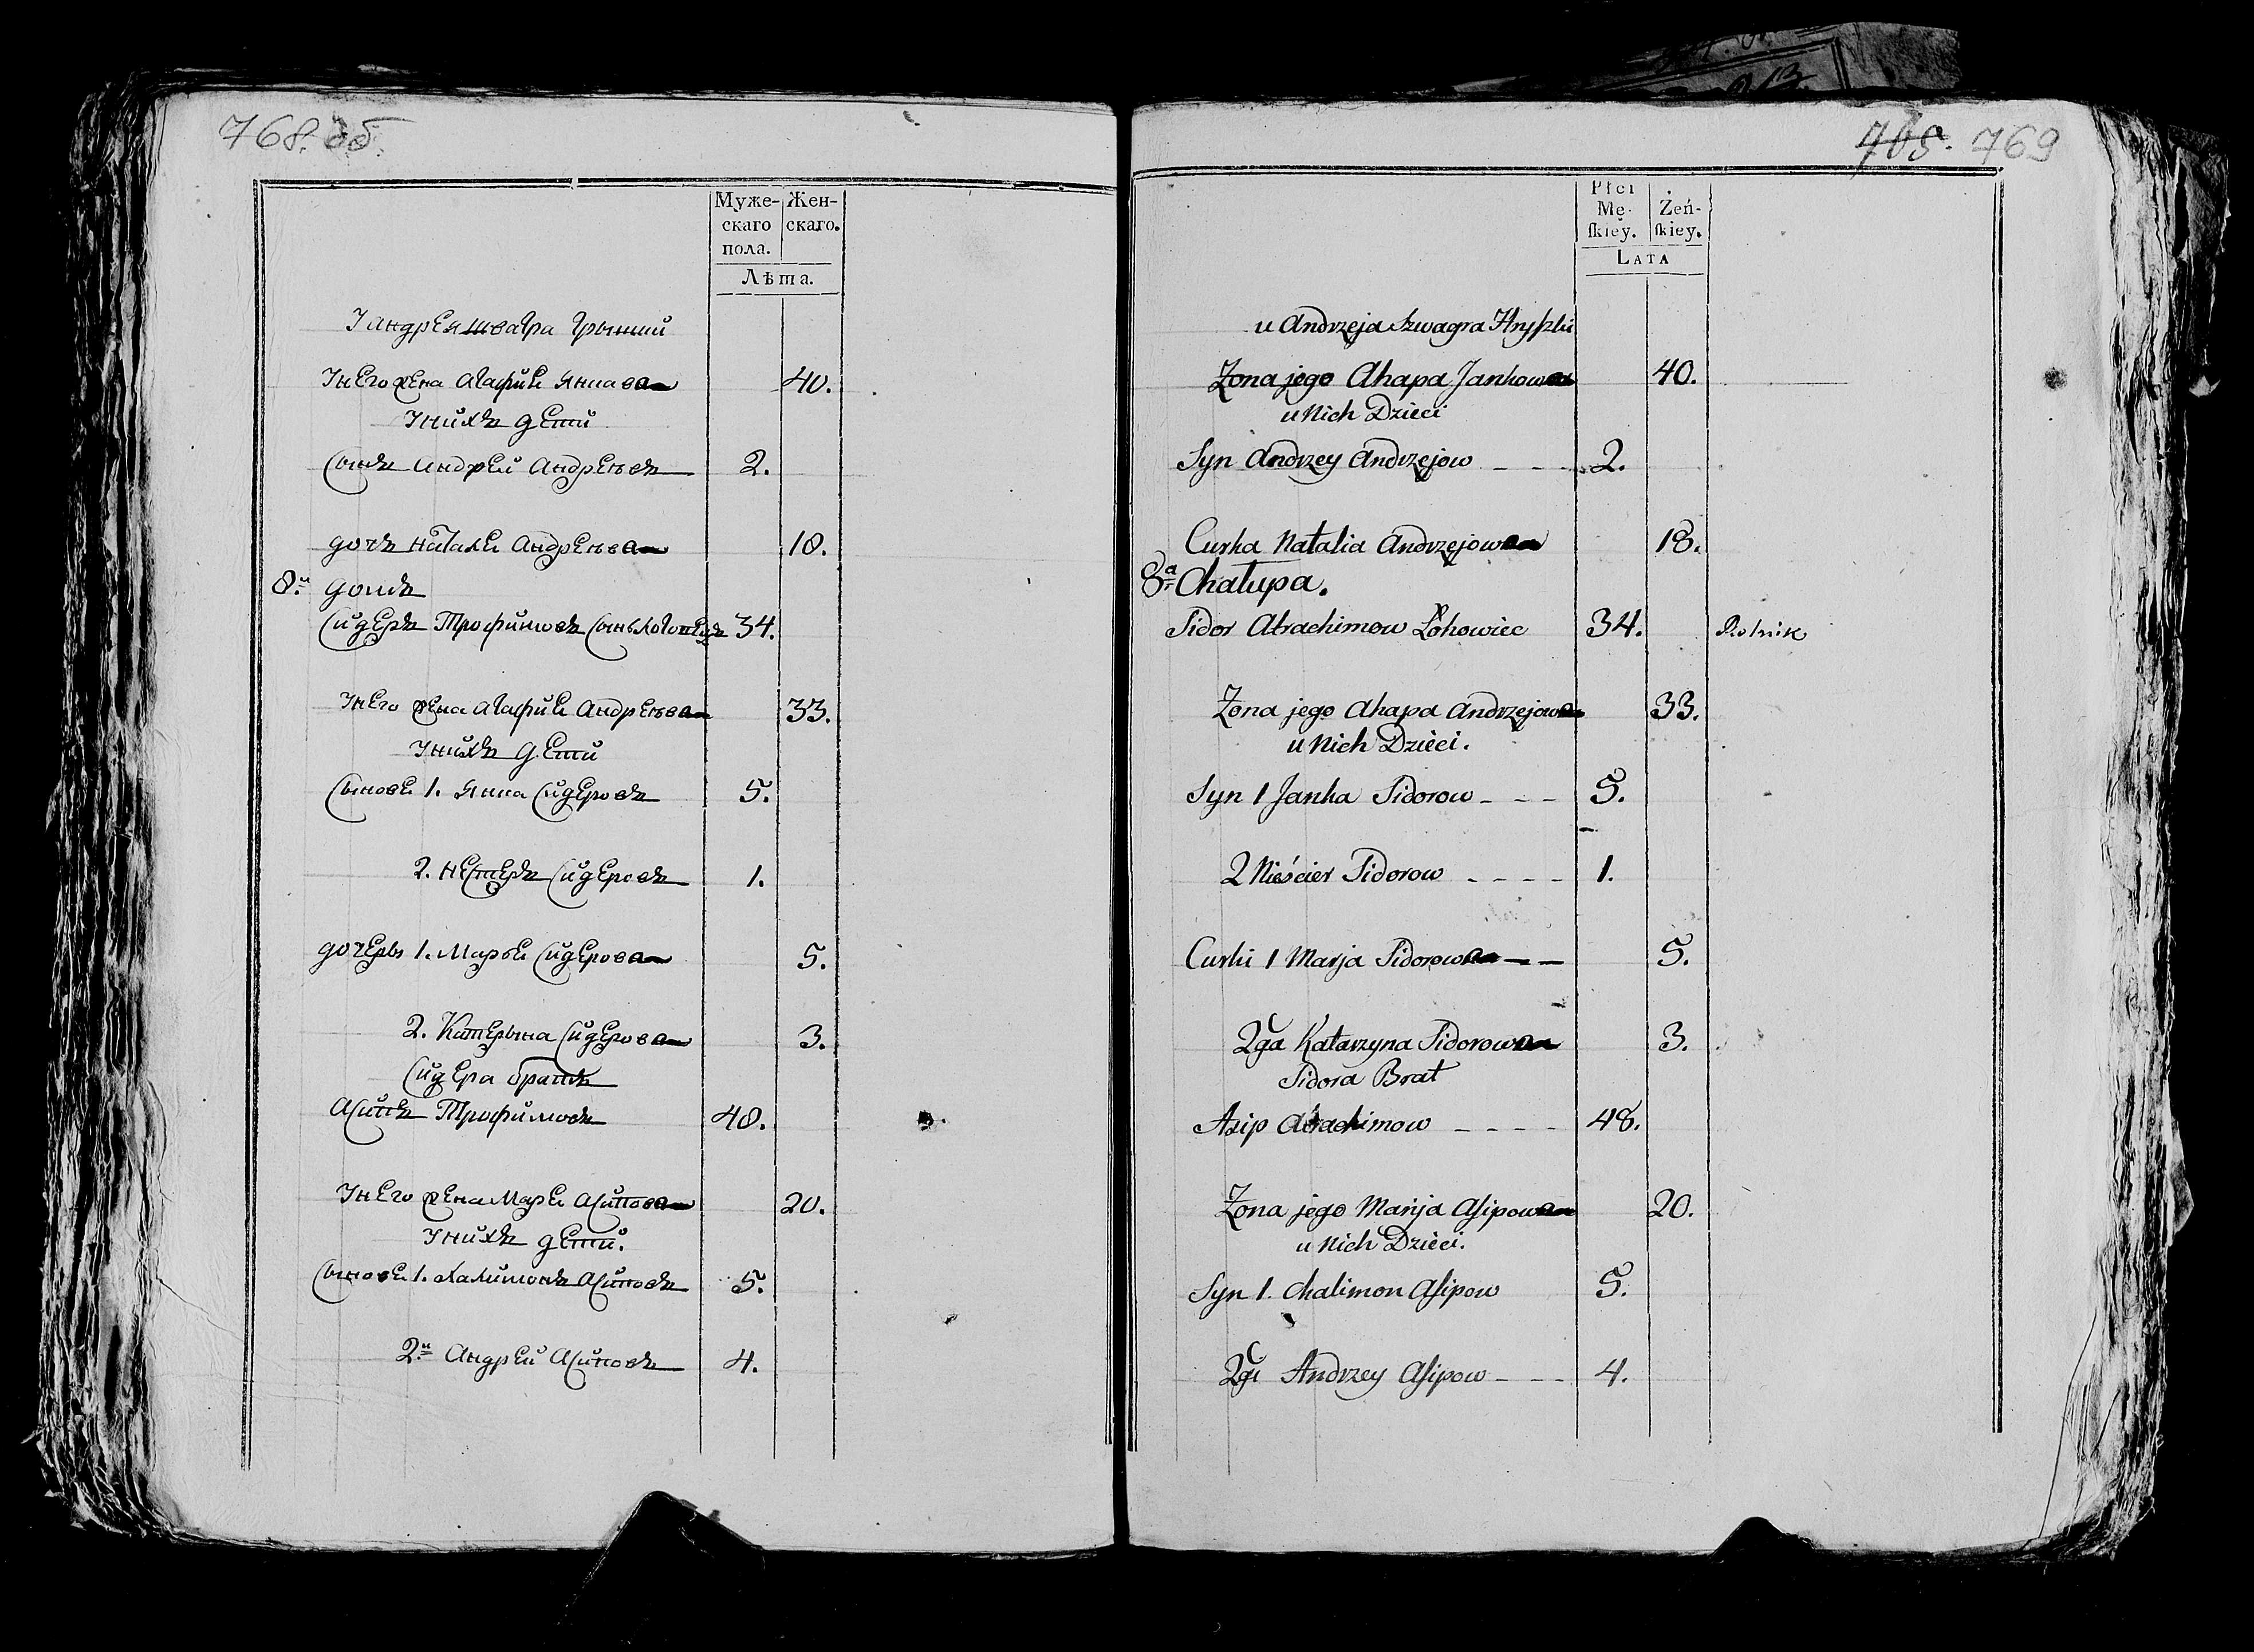 768. об.
Муже- Жен-
скаго скаго.
пола.
Лѣта.
У андрея швагра грышки
У него жена агафия янкава 40.
У нихъ дети
Сынъ андрей андреевъ 2.
дочъ наталя андреева 18.
8.й домъ
Сидеръ Трофимовъ Сынъ 34.
У него жена агафия андреева 33.
У нихъ дети
Сынове 1. янка Сидеровъ 5.
2. нестеръ Сидеровъ 1.
дочеры 1. Марья Сидерова 5.
2. Катерына Сидерова 3.
Сидера братъ
асипъ Трофимовъ 48.
У него жена Марья асипова 20.
У нихъ дети.
Сынове 1. халимонъ асиповъ 5.
2.й андрей асиповъ 4.
705. 769
Płci
Mę- Żeń-
ſkiey. ſkiey.
LATA
u Andrzeja Szwagra Hryszki
Zona jego Ahapa Jankowa 40.
u Nich Dzieci
Syn Andrzey Andrzejow 2.
Curka Natalia Andrzejowa 18.
8a Chałupa.
Sidor Atrachimow Łohowiec 34. Rolnik
Zona jego Ahapa Andrzejowa 33.
u Nich Dzieci.
Syn 1 Janka Sidorow 5.
2 Nieścier Sidorow 1.
Curki 1 Marja Sidorowa 5.
2ga Katarzyna Sidorowa 3.
Sidora Brat
Asip Atrachimow 48.
Zona jego Marija Asipowa 20.
u Nich Dzieci.
Syn 1. Chalimon Asipow 5.
2gi Andrzey Asipow 4.